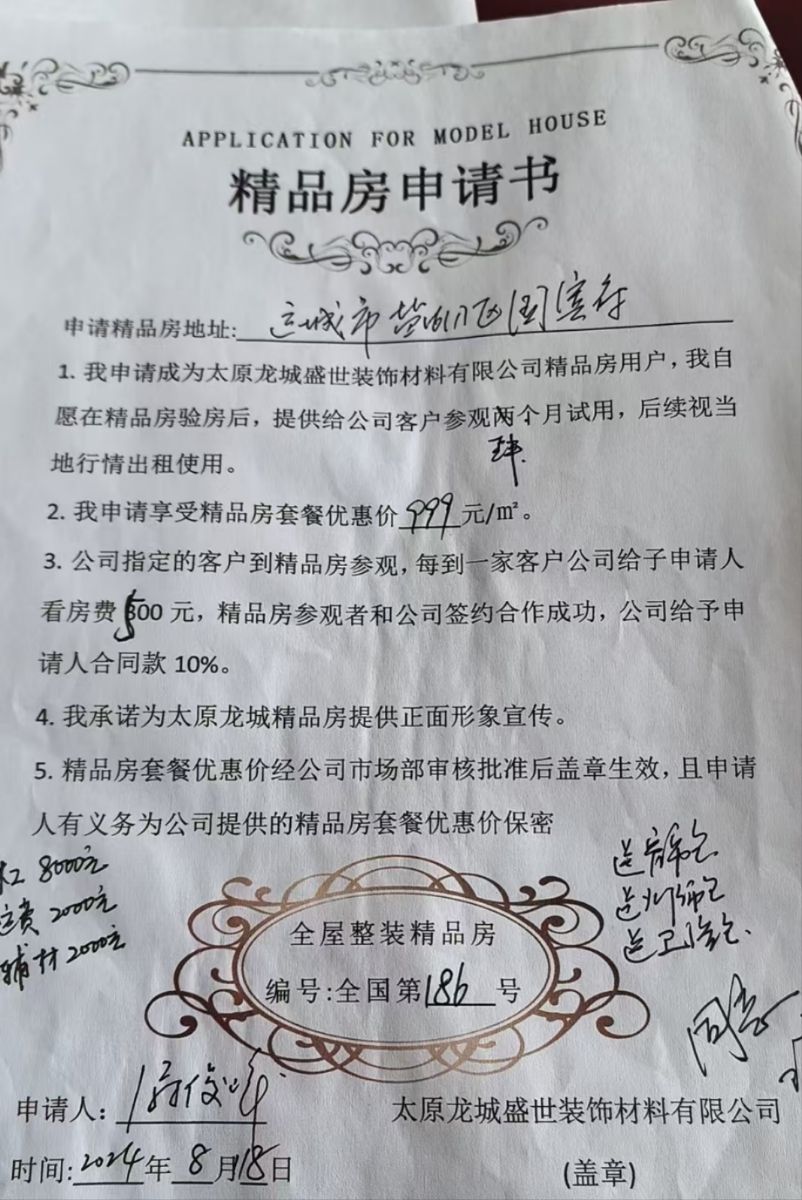 APPLICATION FOR MODEL HOUSE
精品房申请书
申请精品房地址: 运城市
1. 我申请成为太原龙城盛世装饰材料有限公司精品房用户，我自
愿在精品房验房后，提供给公司客户参观两个月试用，后续视当
地行情出租使用。
2. 我申请享受精品房套餐优惠价 999 元/㎡。
3. 公司指定的客户到精品房参观，每到一家客户公司给子申请人
看房费 500 元，精品房参观者和公司签约合作成功，公司给予申
请人合同款 10%。
4. 我承诺为太原龙城精品房提供正面形象宣传。
5. 精品房套餐优惠价经公司市场部审核批准后盖章生效，且申请
人有义务为公司提供的精品房套餐优惠价保密
8000元
运费 2000元
辅材 2000元
送窗帘包
送灯饰包
送卫浴包
全屋整装精品房
编号:全国第 186 号
同意
申请人:
太原龙城盛世装饰材料有限公司
时间: 2024 年 8 月 18 日
(盖章)